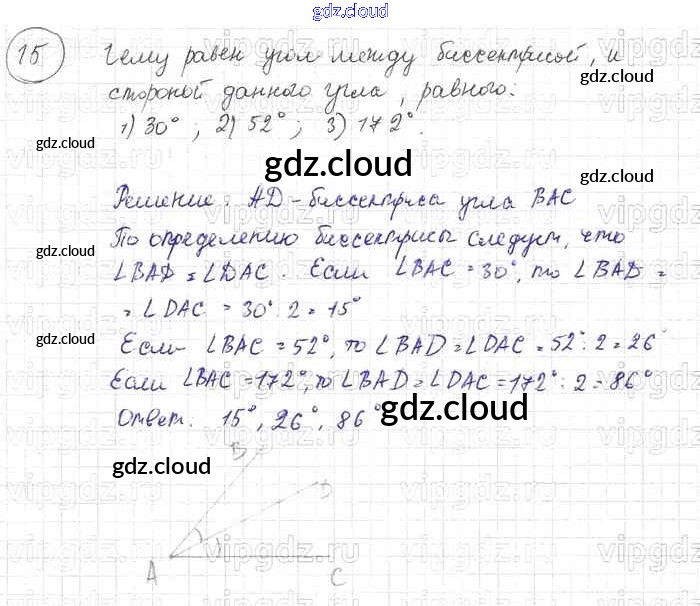 gdz.cloud
15 Чему равен угол между биссектрисой, и
стороной данного угла, равного:
1) 30°; 2) 52°; 3) 172°.
gdz.cloud
gdz.cloud
gdz.cloud
Решение: AD - биссектриса угла BAC
По определению биссектрисы следует, что
∠BAD = ∠DAC. Если ∠BAC = 30°, то ∠BAD =
= ∠DAC = 30° : 2 = 15°
Если ∠BAC = 52°, то ∠BAD = ∠DAC = 52° : 2 = 26°
Если ∠BAC = 172°, то ∠BAD = ∠DAC = 172° : 2 = 86°
Ответ. 15°, 26°, 86°
gdz.cloud
gdz.cloud
gdz.cloud
gdz.cloud
B
D
A
C
vipgdz.ru